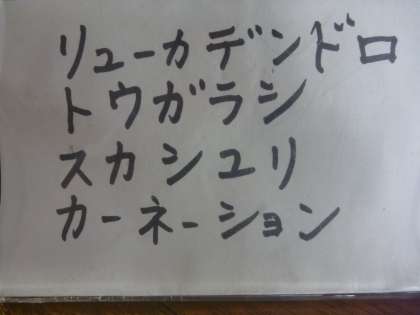 リューカデンドロ
トウガラシ
スカシユリ
カーネーション